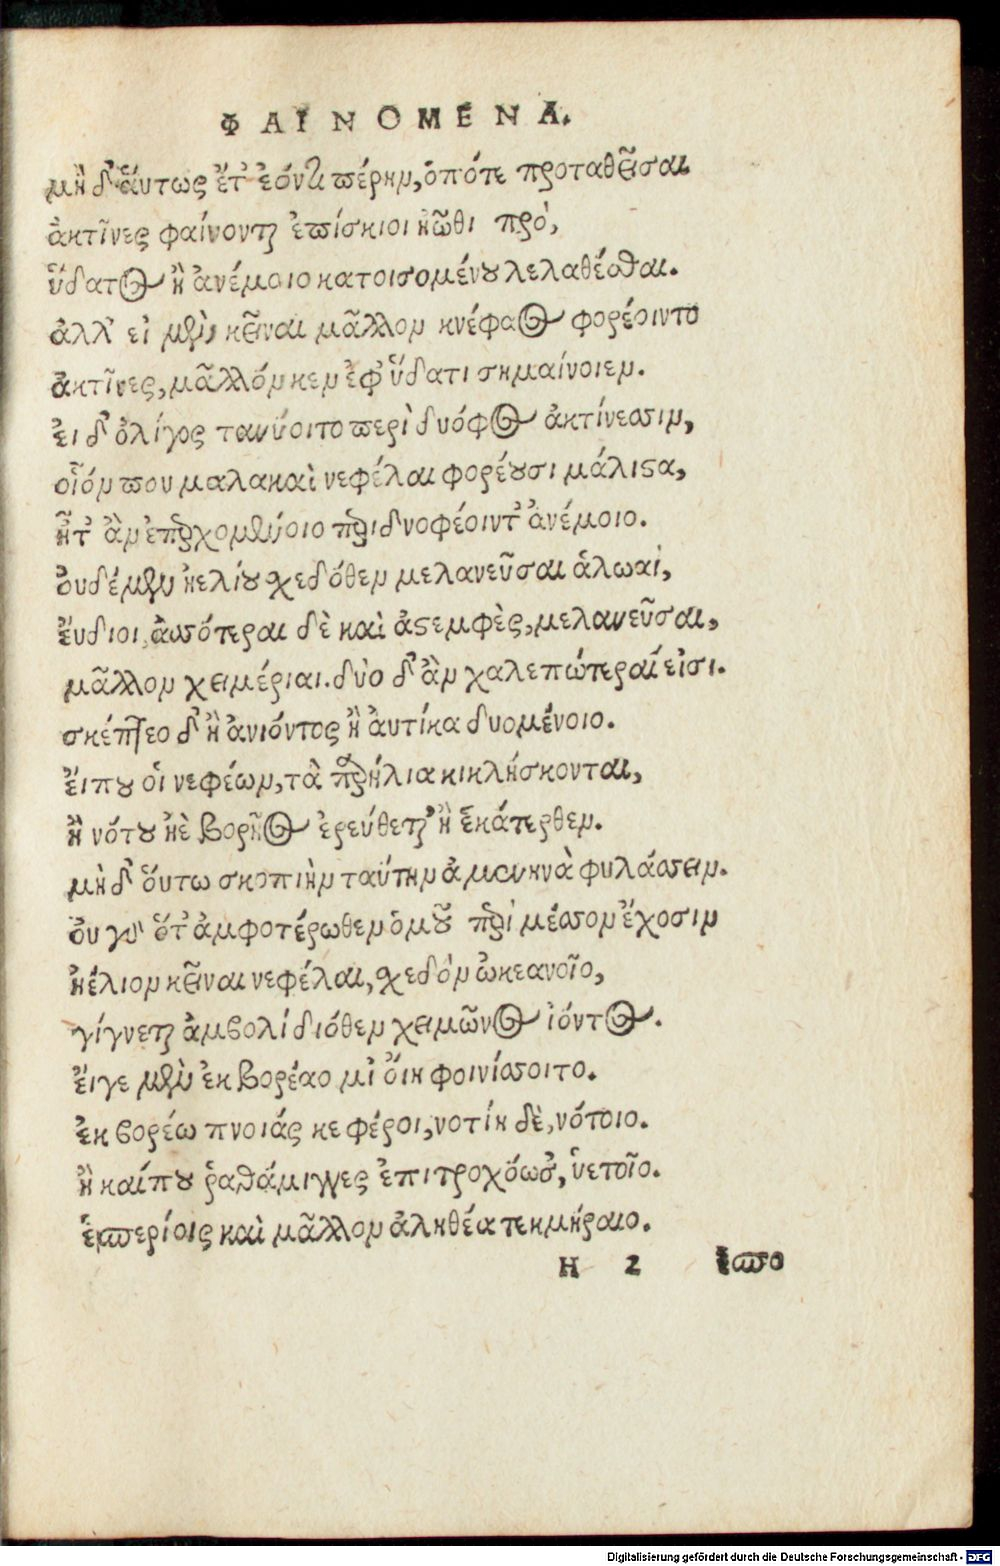 ΦΑΙΝΟΜΕΝΑ.
μὴ δ' ἄυτως ἔτ' ἐόντα πέρην, ὁπότε προταθεῖσαι
ἀκτῖνες φαίνονται ἐπίσκιοι ἠῶθι πρό,
ὕδατος ἢ ἀνέμοιο κατοισομένου λελαθέσθαι.
ἀλλ' εἰ μὲν κεῖναι μᾶλλον κνέφαος φορέοιντο
ἀκτῖνες, μᾶλλόν κεν ἐφ' ὕδατι σημαίνοιεν.
εἰ δ' ὀλίγος τανύοιτο περὶ δνόφος ἀκτίνεσσιν,
οἷόν που μαλακαὶ νεφέλαι φορέουσι μάλιστα,
ἦτ' ἂν ἐπερχομένοιο περιδνοφέοιντ' ἀνέμοιο.
ουδέ μὲν ἠελίου σχεδόθεν μελανεῦσαι ἁλωαί,
ἔυδιοι, ἀσσότεραι δὲ καὶ ἀστεμφὲς, μελανεῦσαι,
μᾶλλον χειμέριαι. δύο δ' ἂν χαλεπώτεραί εἰσι.
σκέπτεο δ' ἢ ἀνιόντος ἢ ἀυτίκα δυομένοιο.
ἔιπου οἱ νεφέων, τὰ παρήλια κικλήσκονται,
ἢ νότου ἠὲ βορῆος ἐρεύθεται ἢ ἑκάτερθεν.
μὴ δ' ὅυτω σκοπιὴν ταύτην ἀμενηνὰ φυλάσσειν.
ὀυ γὰρ ὅτ' ἀμφοτέρωθεν ὁμοῦ περὶ μέσσον ἔχοσιν
ἠέλιον κεῖναι νεφέλαι, σχεδὸν ὠκεανοῖο,
γίγνεται ἀμβολίδιόθεν χειμῶνος ἰόντος.
ἔιγε μὲν ἐκ βορέαο μί' ὄιη φοινίσσοιτο.
ἐκ βορέω πνοιάς κε φέροι, νοτίη δὲ, νότοιο.
ἢ καίπου ῥαθάμιγγες ἐπιτροχόωσ', ὑετοῖο.
ἑσπερίοις καὶ μᾶλλον ἀληθέα τεκμήραιο.
Η 2 ἑσπο
Digitalisierung gefördert durch die Deutsche Forschungsgemeinschaft - DFG